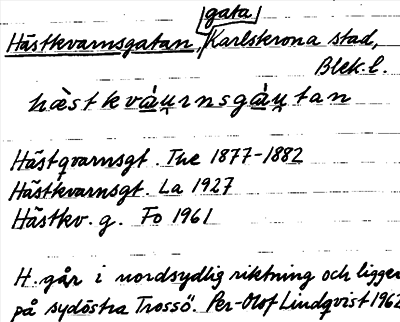 gata
Hästkvarnsgatan, Karlskrona stad,
Blek. l.
hæ̀stkvà̰ṵrnsgà̰ṵtan
Hästqvarnsgt. The 1877-1882
Hästkvarnsgt. La 1927
Hästkv. g. Fo 1961
H. går i nordsydlig riktning och ligger
på sydöstra Trossö. Per-Olof Lindqvist 1962